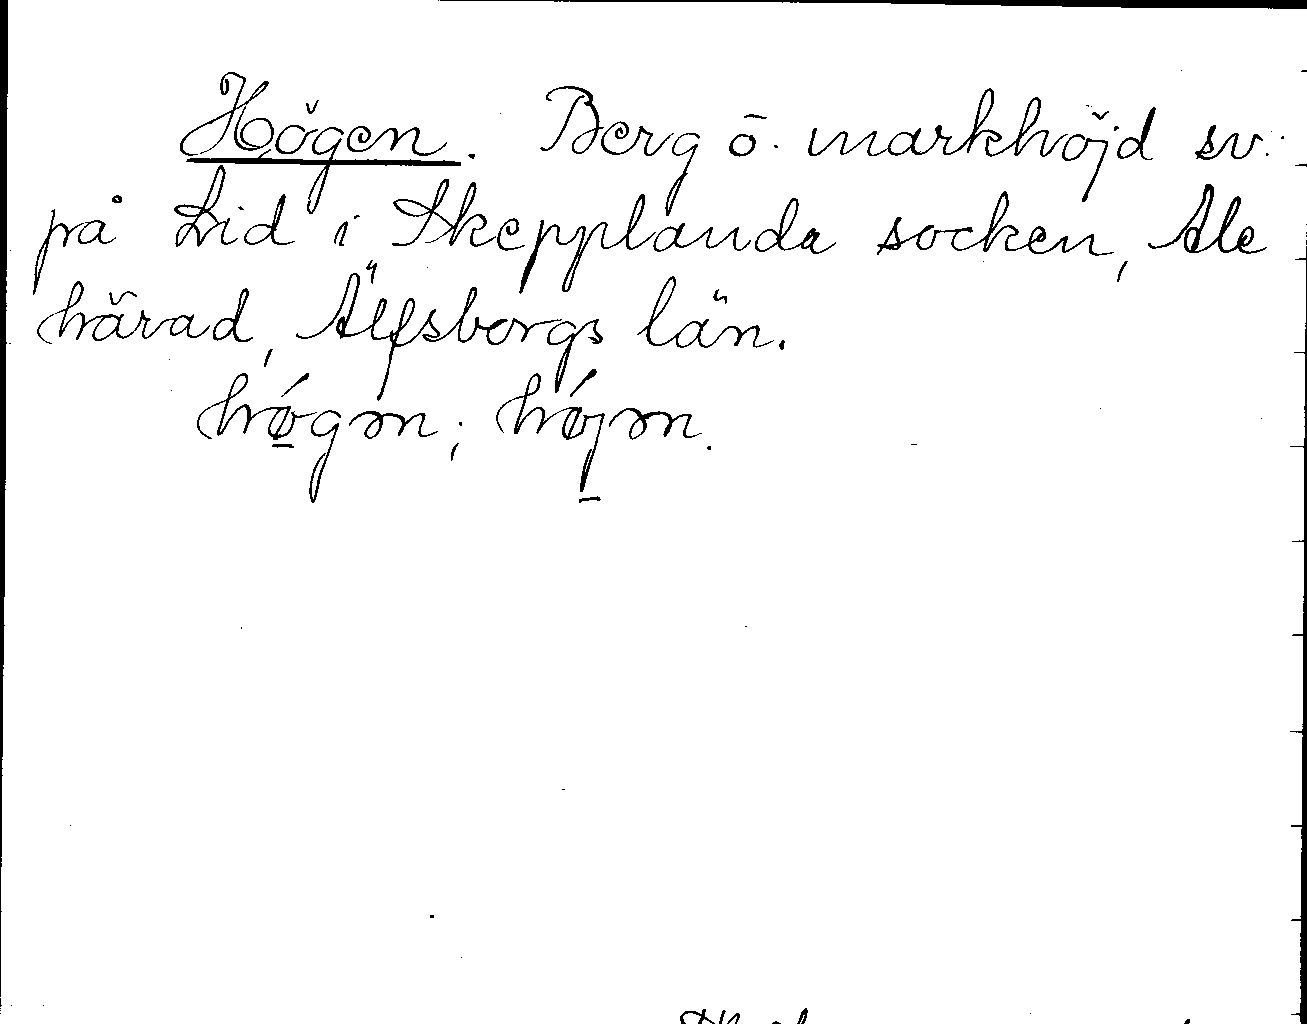 Högen. Berg o. markhöjd sv.
på Lid i Skepplanda socken, Ale
härad, Älfsborgs län.
hǿ̱gən; hǿj̱ən.